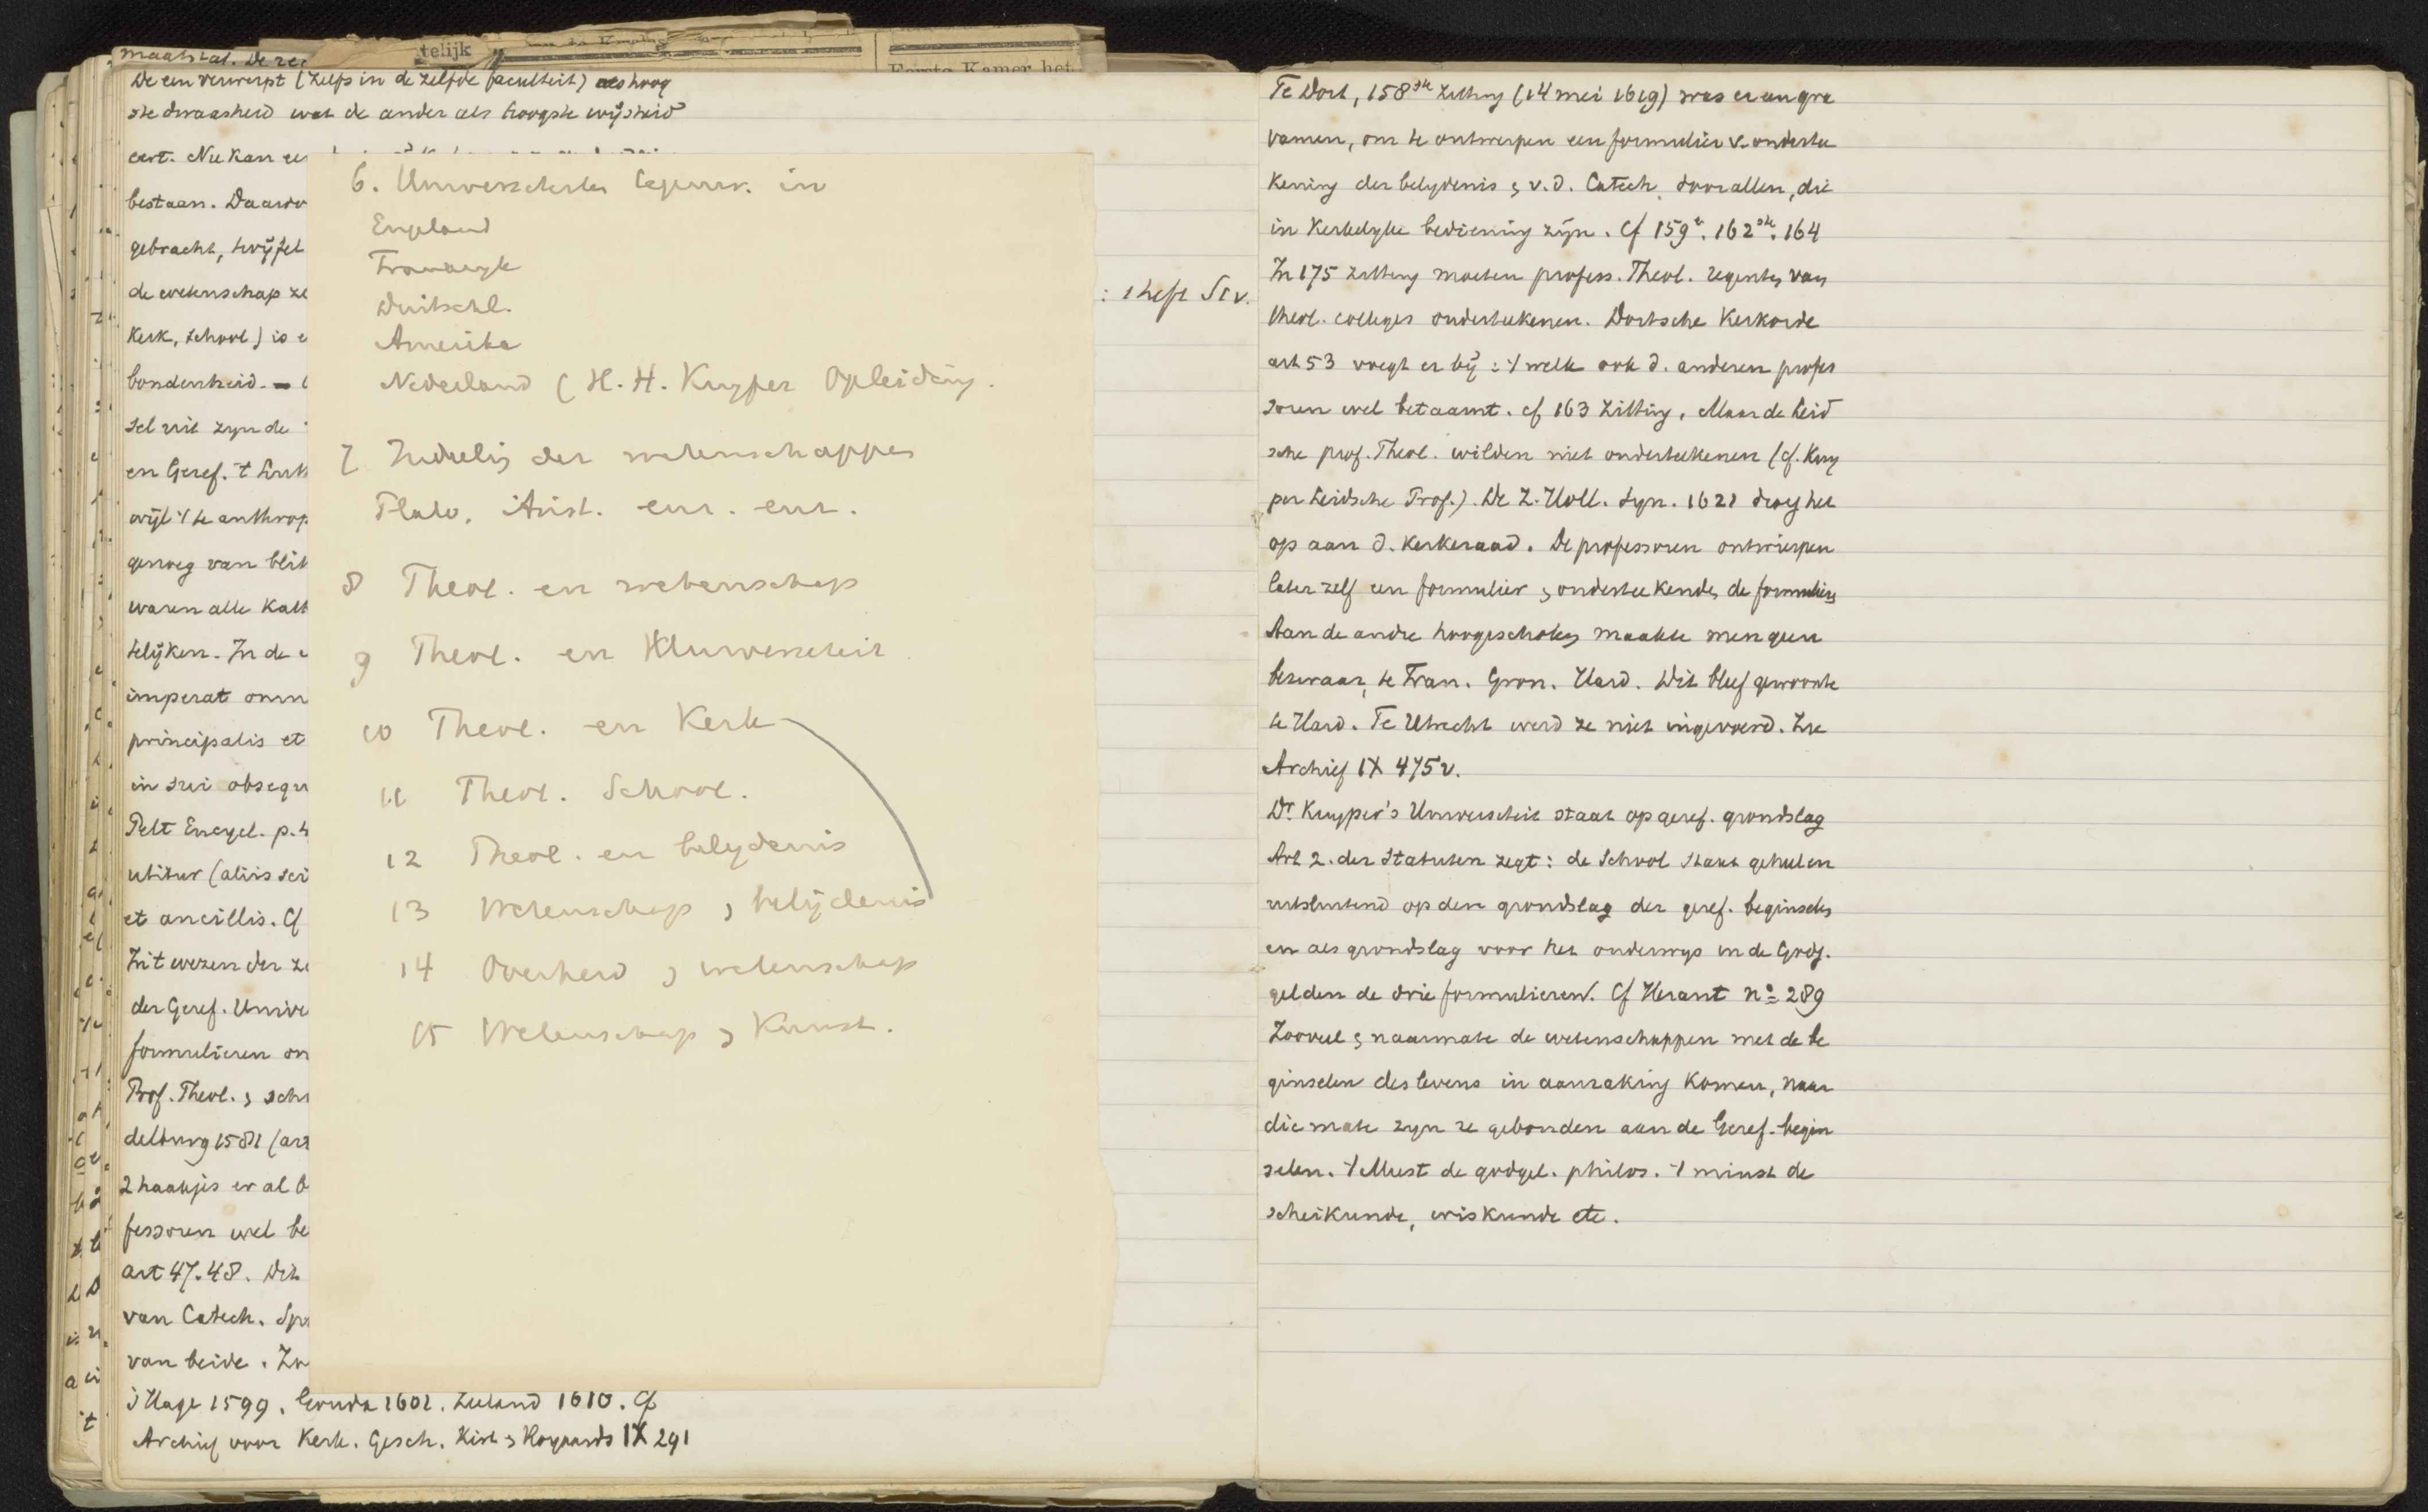 telijk
Eerste Kamer het
maatstaf. De
De een verwerpt (zelfs in de zelfde faculteit) als hoog
ste dwaasheid wat de ander als hoogste wijsheid
eert. Nu kan
bestaan. Daardo
gebracht, twijfel
de wetenschap ze
Kerk, School) is
bondenheid. –
sel uit zynde
en Geref. 't
wijl 't te anthrop
genoeg van
waren alle
telijken. In de
imperat omn
principalis et
in sui obsequ
Pelt Encycl. p. 4
utitur (aliis sci
et ancillis. Cf
In't wezen der
der Geref. Unive
formulieren on
Prof. Theol. & schr
delburg 1581 (art
2 haakjes er al
fessoren wel be
art 47. 48. Dit
van Catech.
van beide.
's Hage 1599. Gouda 1601. Zeeland 1610. Cf
Archief voor Kerk. Gesch. Kist & Royaards IX 291
6. Universiteiten in
Engeland
Frankryk
Duitschl.
Amerika
Nederland (H. H. Kuyper Opleiding.
7 Indeeling der wetenschappen
Plato, Arist. enz. enz.
8 Theol. en wetenschap
9 Theol. en Universiteit
10 Theol. en Kerk
11 Theol. School.
12 Theol. en belydenis
13 Wetenschap & belijdenis
14 Overheid & wetenschap
15 Wetenschap & Kunst.
Te Dort, 158ste zitting (14 mei 1619) was er een gra
vamen, om te ontwerpen een formulier v. onderte
kening der belydenis & v. d. Catech. door allen, die
in Kerkelyke bediening zijn. Cf 159e. 162ste. 164
In 175 zitting moeten profess. Theol. regenten van
theol. colleges onderteekenen. Dortsche Kerkorde
art 53 voegt er bij: 't welk ook d. anderen profes
soren wel betaamt. cf 163 zitting. Maar de Leid
sche prof. Theol. wilden niet onderteekenen (cf. Kuy
per Leidsche Prof.). De Z. Holl. Syn. 1621 droeg het
op aan d. Kerkeraad. De professoren ontwierpen
later zelf een formulier & onderteekenden de formulieren
Aan de andre hoogescholen maakte men geen
bezwaar, te Fran. Gron. Hard. Dit bleef gewoonte
te Hard. Te Utrecht werd ze niet ingevoerd. Zie
Archief IX 475 v.
Dr. Kuyper's Universiteit staat op geref. grondslag
Art 2. der Statuten zegt: de School staat geheel en
uitsluitend op den grondslag der geref. beginselen
en als grondslag voor het onderwys in de Godg.
gelden de drie formulieren. Cf Heraut no 289
Zooveel & naarmate de wetenschappen met de be
ginselen des levens in aanraking Komen, naar
die mate zyn ze gebonden aan de Geref. begin
selen. 't Meest de godgel. philos. 't minst de
scheikunde, wiskunde etc.